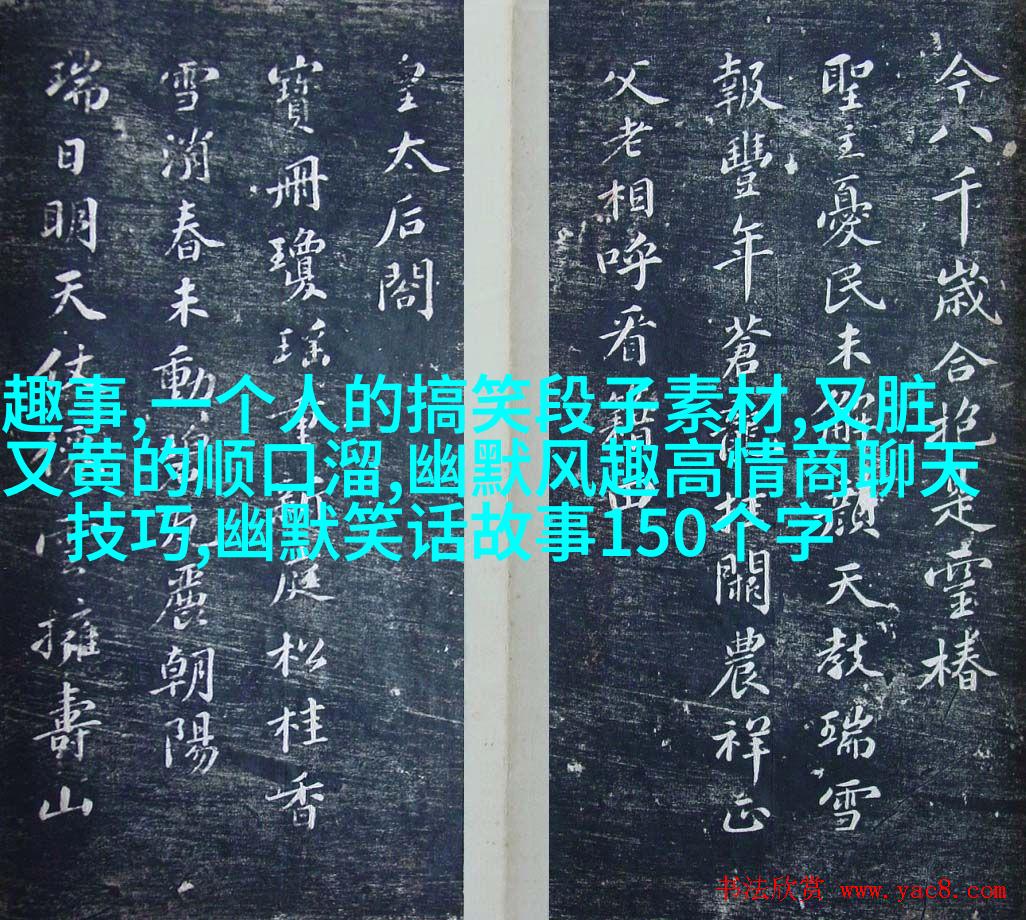 今八千歳合抱是靈椿
聖主憂民未解顔天教瑞雪
報豐年蒼龍挂闕農祥正
父老相呼看
皇太后閤
寶冊瓊瑤重庭松桂香
雪消春未動麗朝陽
瑞日明天仗擁壽山
趣事,一个人的搞笑段子素材,又脏
又黄的顺口溜,幽默风趣高情商聊天
技巧,幽默笑话故事150个字
书法欣赏 www.yac8.com